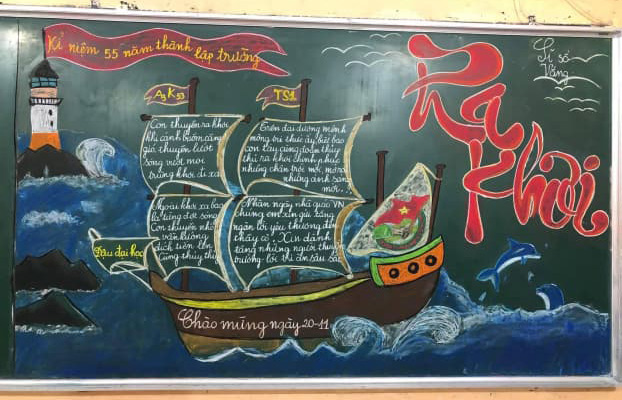 Kỉ niệm 55 năm thành lập trường
Ra
Khơi
Sĩ số
Vắng
A3 K53
TS1
Con thuyền ra khơi
khi cánh buồm căng
gió thuyền lướt
sóng vượt mọi
trùng khơi đi xa
Trên đại dương mênh
mông tri thức ấy, biết bao
con tàu cùng đoàn thủy
thủ ra khơi chinh phục
những chân trời mới, mở ra
những ánh sáng
mới..
Ngoài khơi xa bao
la tầng đợt sóng
Con thuyền nhỏ
vẫn không
đích tiến lên
Cùng thủy thủ
Nhân ngày nhà giáo VN
chúng em xin gửi tặng
ngàn lời yêu thương đến
thầy cô. Xin dành
tặng những người thuyền
trưởng lời tri ân sâu sắc
Đậu đại học
Chào mừng ngày 20-11